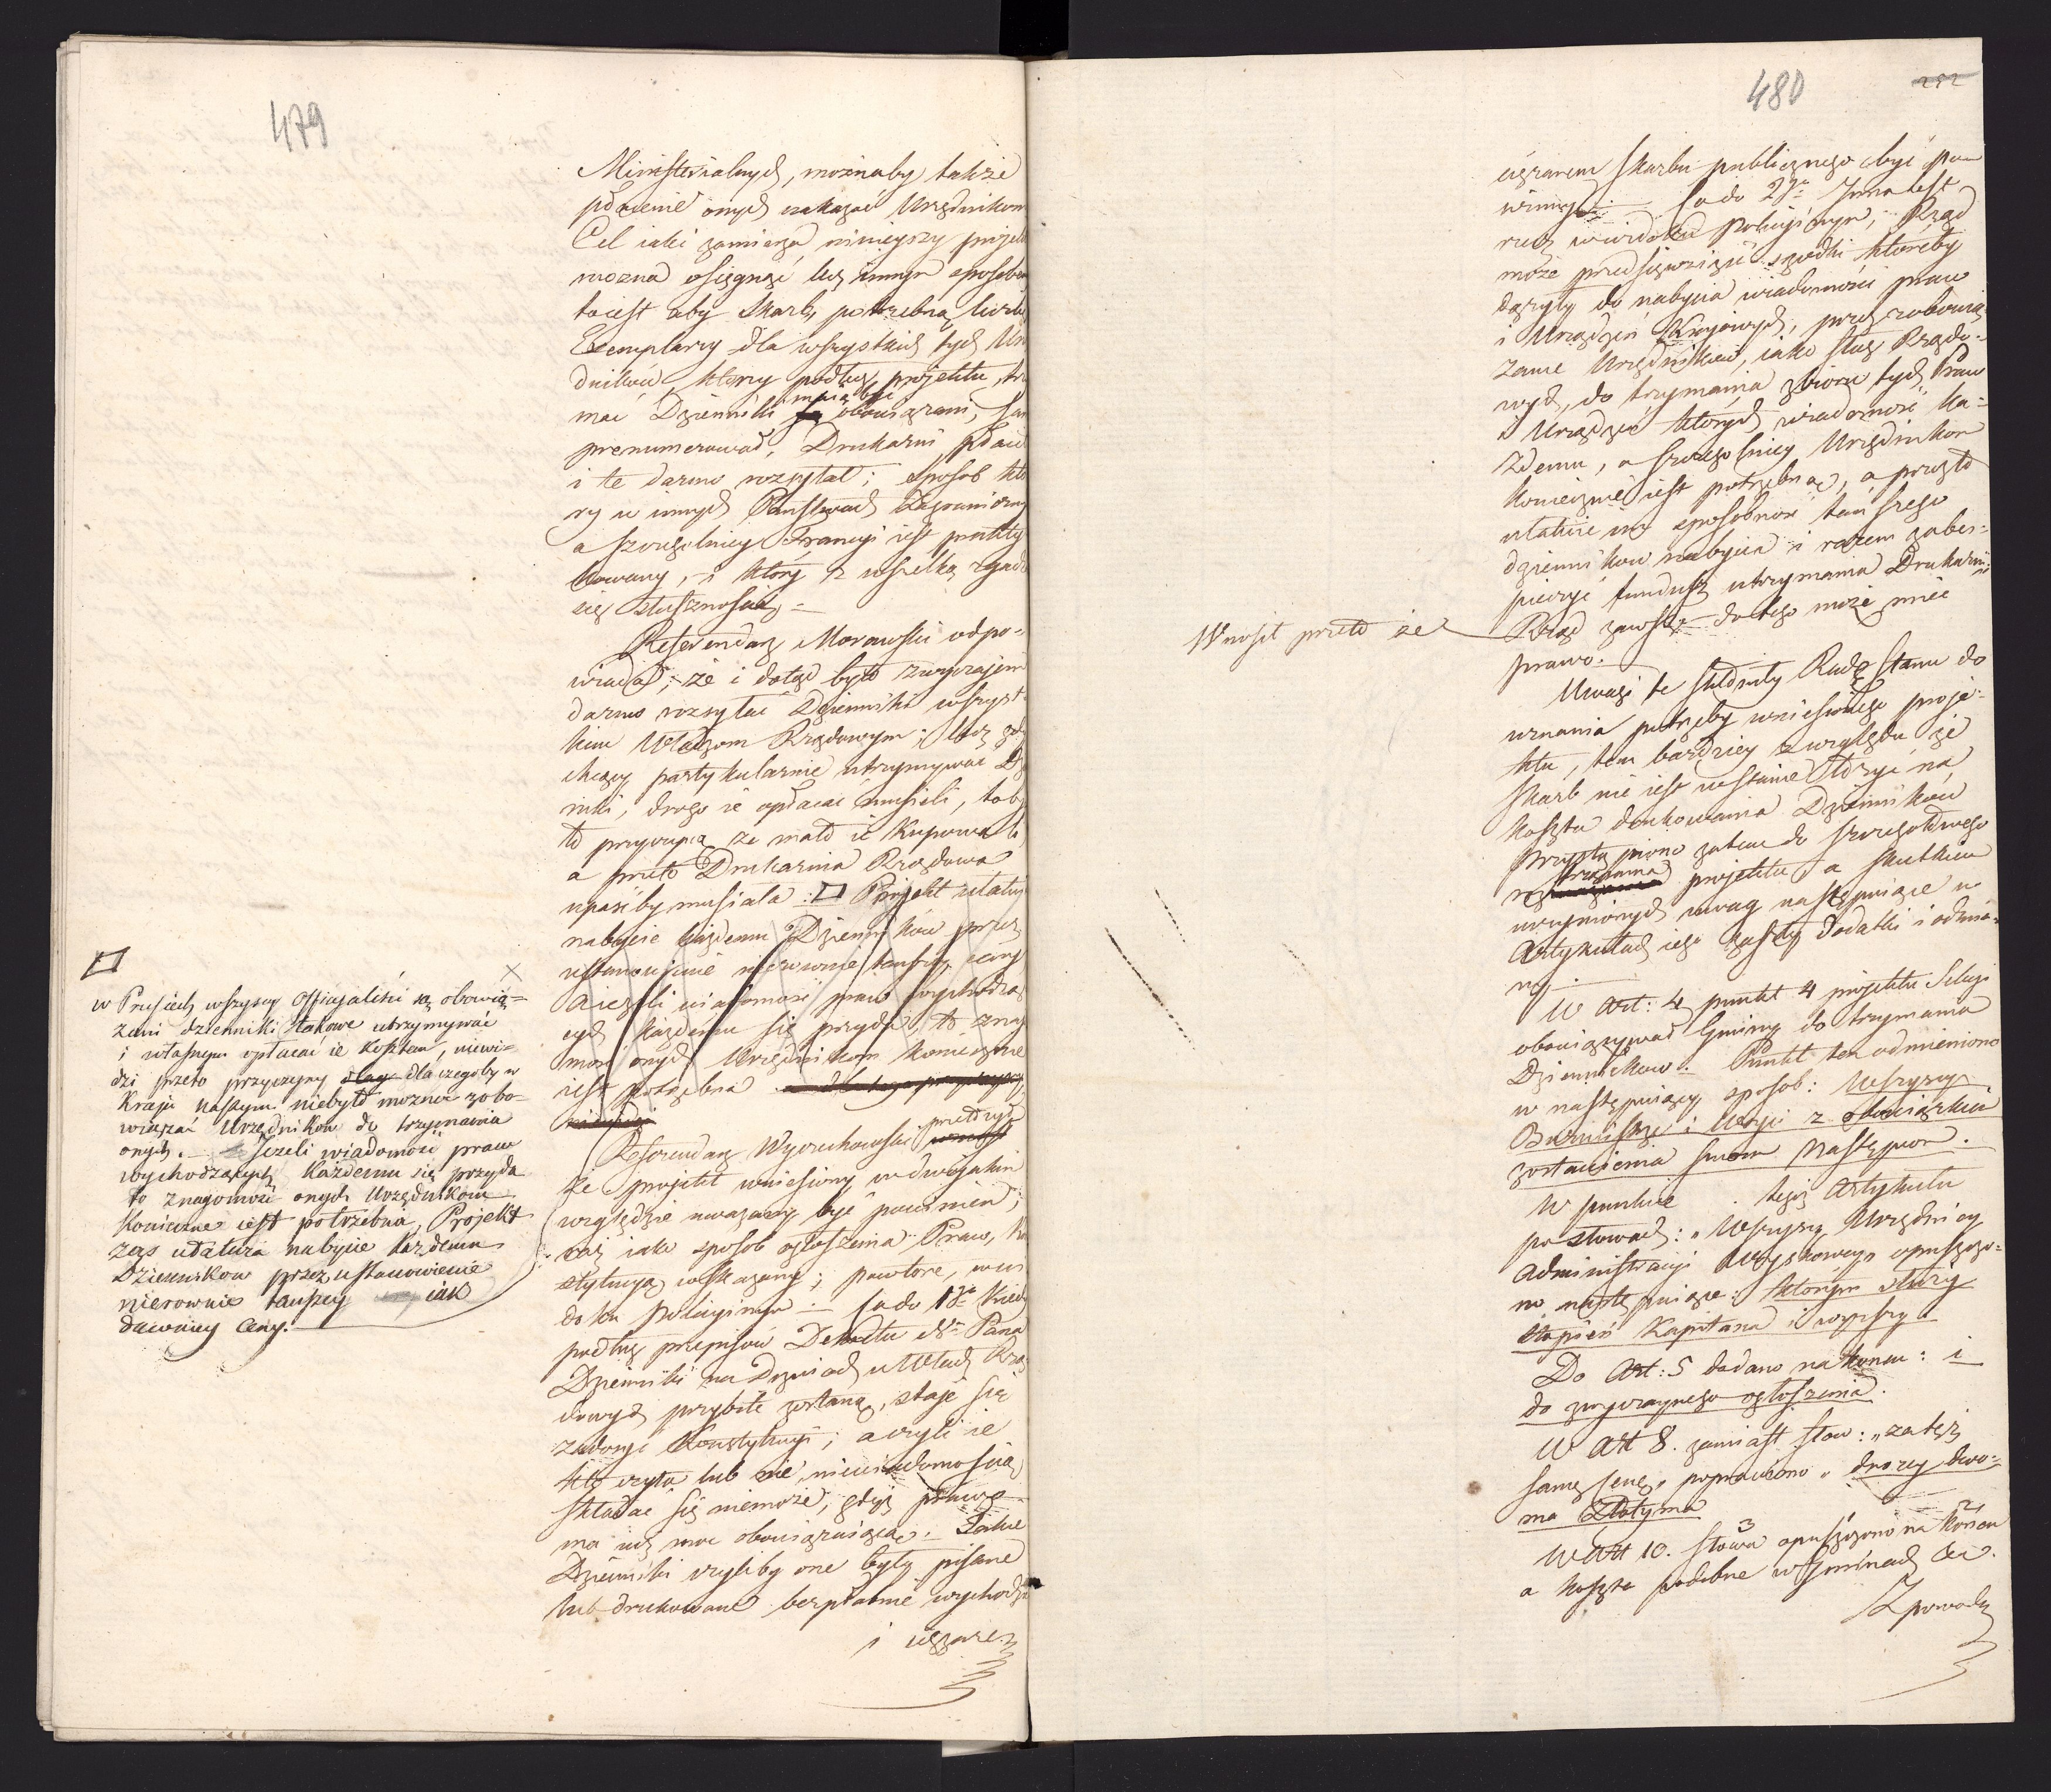 479
Ministerialnych, możnaby także
płacenie onych nakazać Urzędnikom
Cel iaki zamierza ninieyszy projekt
można osiągnąć lecz innym sposobem
toiest aby Skarb potrzebną liczbę
Exemplarzy dla wszystkich tych Urzę
dników, którzy podług projektu trzy
maią być
mać Dzienniki są obowiązani, sam
prenumerował, Drukarni płacił
i te darmo rozsyłał; sposob któ
ry w innych Państwach Zagranicznych
a szczegolniey Francyi iest prakty
kowany, i który z wszelką zgadza
się słusznością. =
Referendarz Morawski odpo=
wiadał; że i dotąd było zwyczajem
darmo rozsyłać Dzienniki wszyst
kim Władzom Rządowym; lecz gdy
chcący partykularnie utrzymywać Dzie
niki, drogo ie opłacać musieli, toby
to przyczyną że mało ie kupowało
a przeto Drukarnia Rządowa
upaśćby musiała : □ Projekt ułatwia
nabycie każdemu Dzienników przez
ustanowienie nierownie tańszey ceny
a ieżeli wiadomość praw wychodzą
cych każdemu się przyda, to znajo
mość onych Urzędnikom konieczne
iest potrzebna
Referendarz Wyczechowski przełożył
że projekt wniesiony w dwojakim
względzie uważany być powinien;
raz iako sposob ogłoszenia Praw, Kon
stytucyą wskazany; powtore, wwi
doku policyinym : Co do 1go Kiedy
podług przepisów Dekretu Nº Pana
Dzienniki na Drzwiach u Władz Rzą
dowych przybite zostaną, staje się
zadosyć Konstytucyi; a czyli ie
kto czyta lub nie, niewiadomością
składać się niemoże, gdyż prawo
ma iuż moc obowiązuiącą. Takie
Dzienniki czyliby one były pisane
lub drukowane bezpłatnie wychodzić
i ciężarem
□
w Prusiech wszyscy Officyaliści są obowią=
zani dzienniki takowe utrzymywać
i własnym opłacać ie kosztem, niewi=
dzi przeto przyczyny dlaczegoby w
Kraju naszym niebyło można zobo=
wiązać Urzędników do trzymania
onych. – Jeżeli wiadomość praw
wychodzących każdemu się przyda
to znajomość onych Urzędnikom
konieczne iest potrzebna, Projekt
zaś ułatwia nabycie każdemu
Dzienników przez ustanowienie
nierownie tańszey iak
dawniey ceny.
480
282
ciężarem Skarbu publicznego być po=
winny. Co do 2go Inna iest
rzecz w widoku Policyjnym, Rząd
może przedsięwziąść środki któreby
dążyły do nabycia wiadomości praw
i Urządzeń Krajowych, przez zobowią
zanie Urzędników, iako sług Rządo=
wych, do trzymania zbioru tych Praw
i Urządzeń których wiadomość ka=
żdemu, a szczegolniey Urzędnikom
koniecznie iest potrzebną, a przeto
ułatwić im sposobność tańszego
dzienników nabycia i razem zabes=
pieczyć fundusz utrzymania Drukarni:
Wnosił przeto że Rząd zawsze do tego może mieć
prawo.
Uwagi te skłoniły Radę Stanu do
uznania potrzeby wniesionego proje=
ktu, tem bardziey z względu że
skarb nie iest wstanie łożyć na
koszta drukowania Dzienników
Przystąpiono zatem do szczegołowego
rozbiorania projektu a skutkiem
uczynionych uwag następuiące w
Artykułach iego zaszły dodatki i odmia=
ny.
W Art: 4 punkt 4 projektu Sekcyi
obowiązywał Gminy do trzymania
Dzienników. Punkt ten odmieniono
w następuiący sposob: Wszyscy
Burmistrze i Woyci z obowiązkiem
zostawienia swoim następcom.
W punkcie . tegoż Artykułu
po słowach: „Wszyscy Urzędnicy
Administracyi Woyskowey„ opuszczo=
no następuiące: którym służy
stopień Kapitana i wyższy
Do Art: 5 dodano na końcu: i
do zwyczaynego ogłoszenia.
W Art 8. zamiast słow: „za tęż
samę cenę„ poprawiono „drożey dwo=
ma Złotymi
W Art 10. słowa 3 opuszczono na końcu
a koszta podobne w Gminach &c.
Z powodu